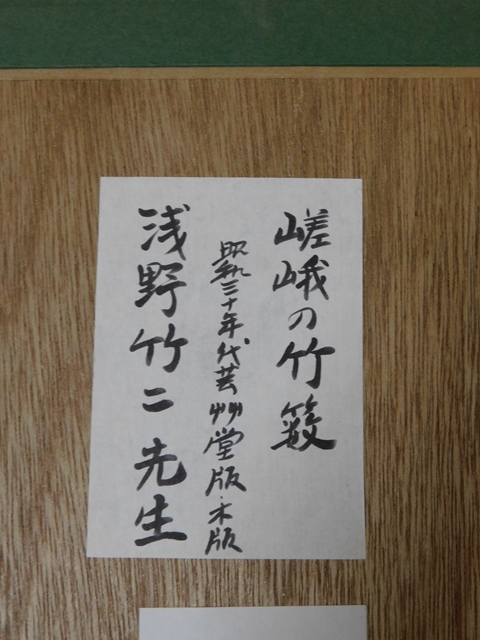 嵯峨の竹籔
昭和三十年代芸艸堂版・木版
浅野竹二先生